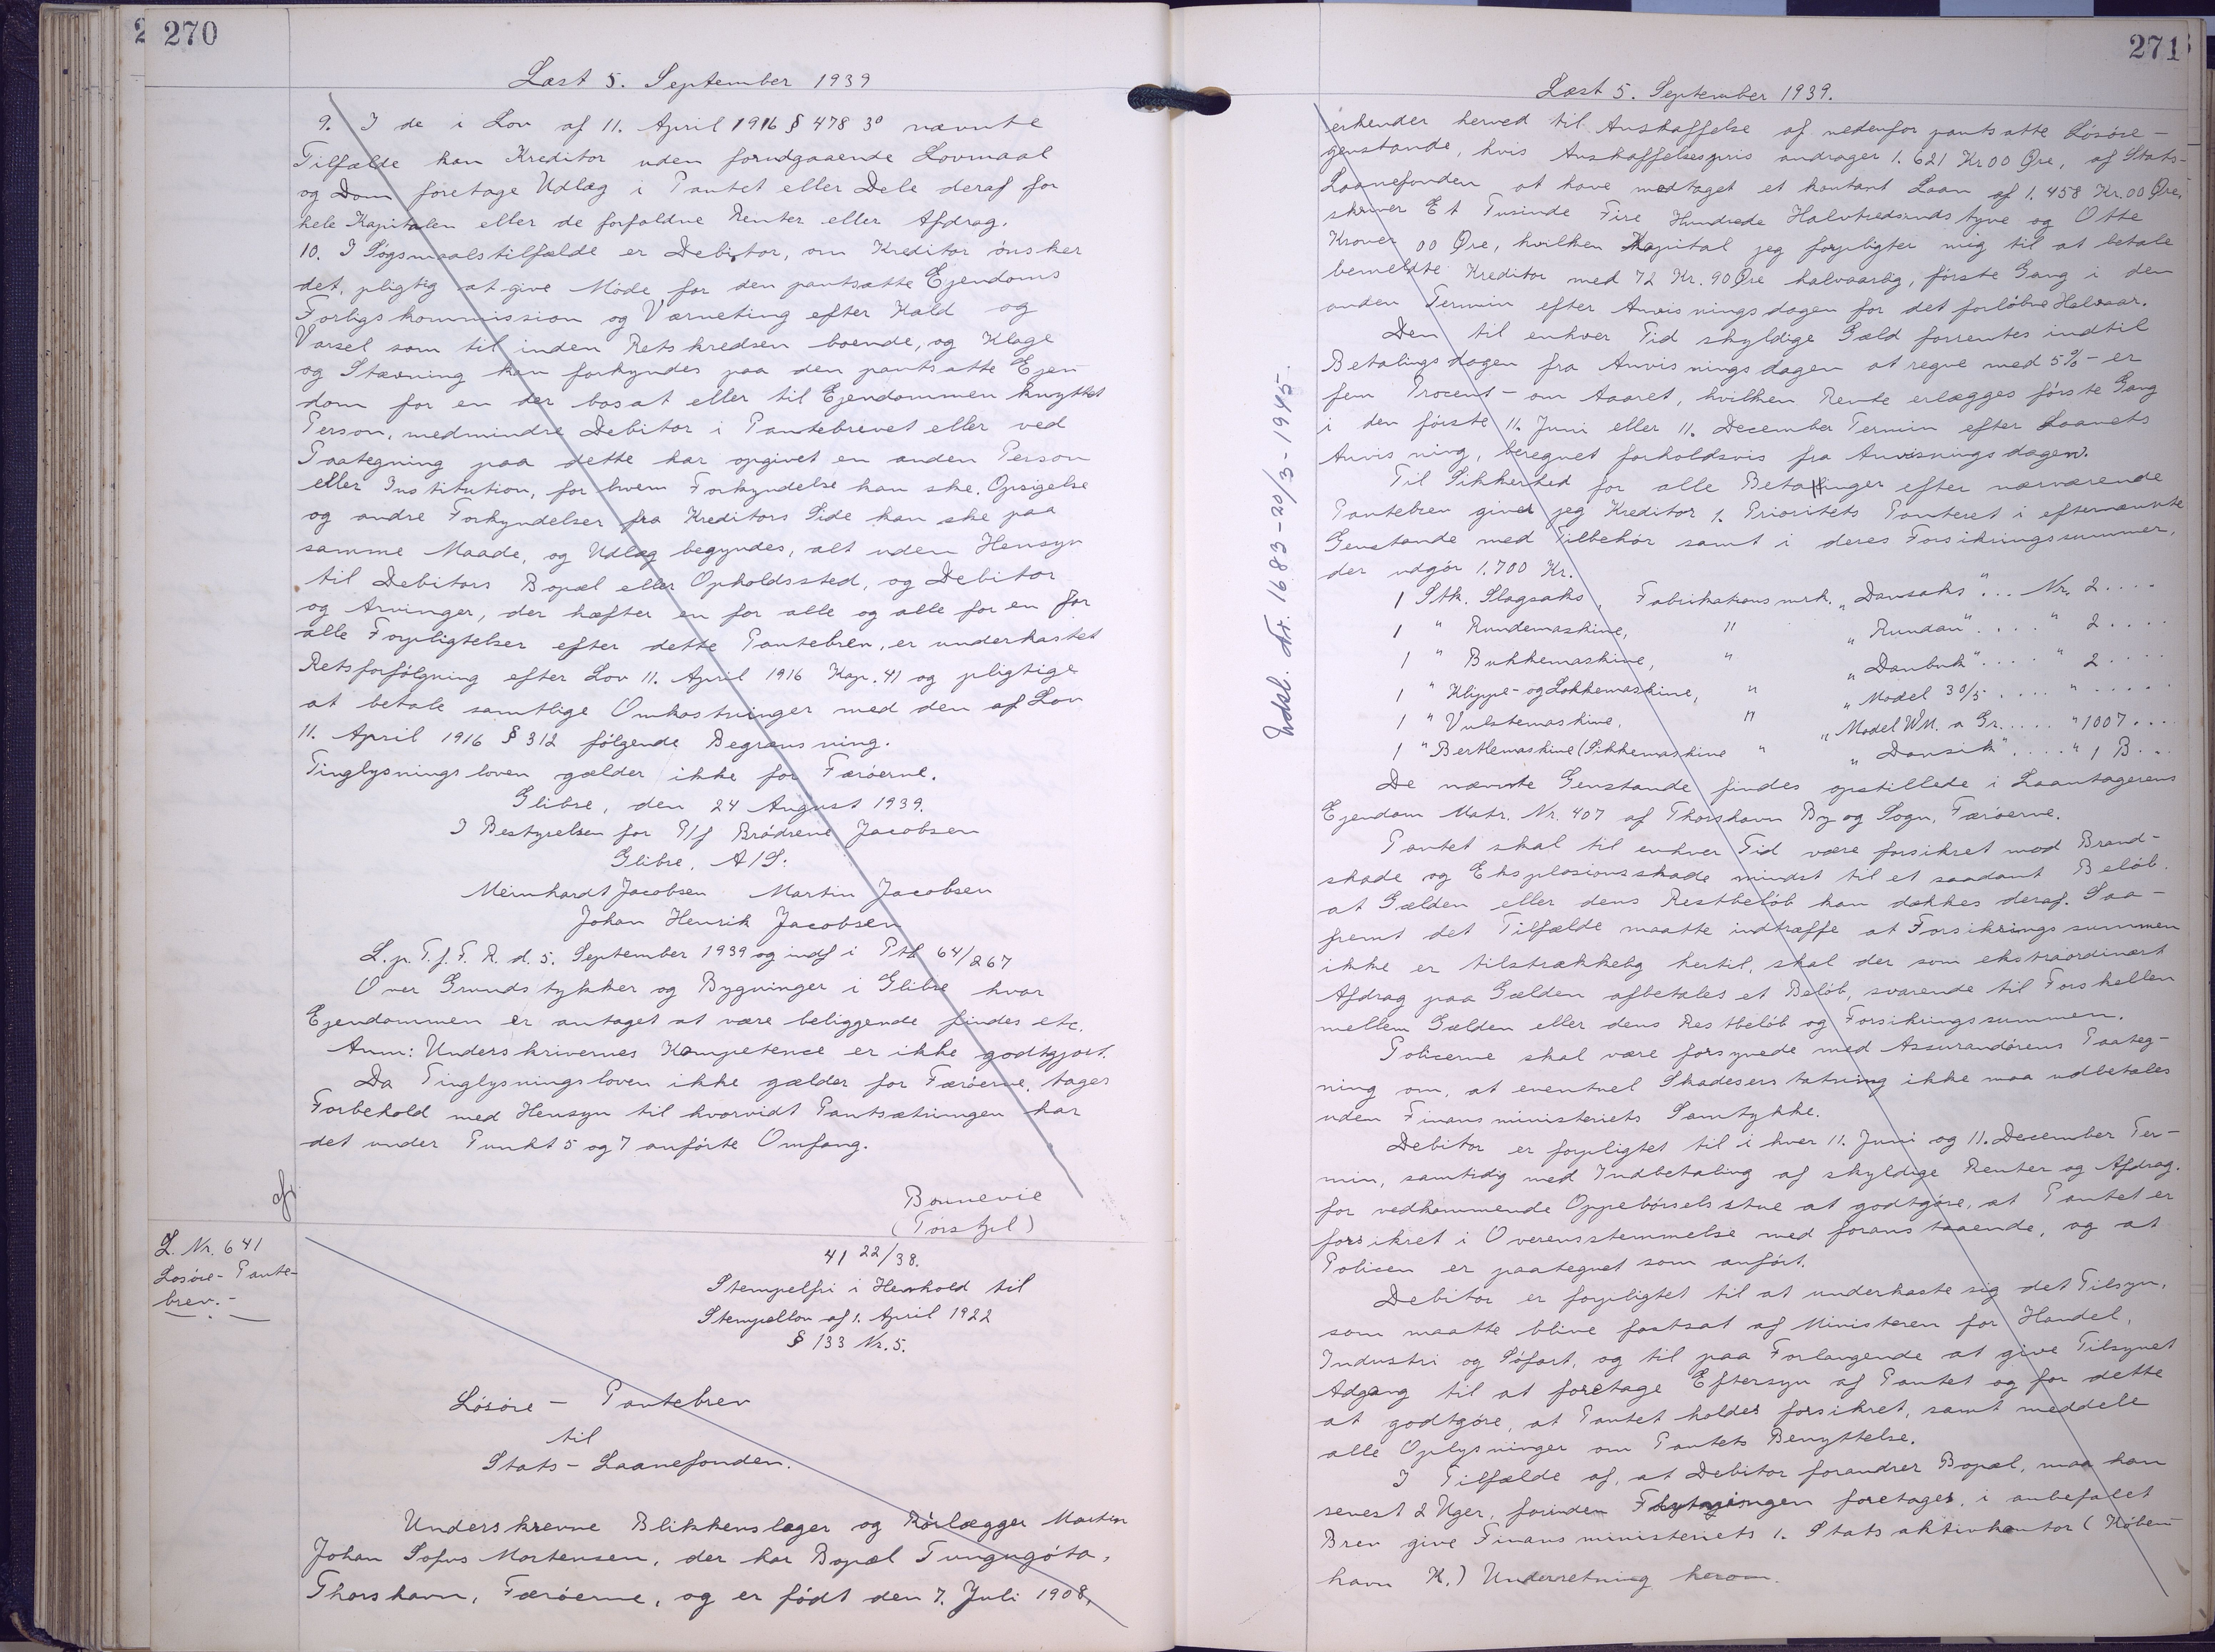 270
Læst 5. September 1939
9. I de i Lov af 11. April 1916 § 478 3º nævnte
Tilfælde kan Kreditor uden forudgaaende Lovmaal
og Dom foretage Udlæg i Pantet eller Dele deraf for
hele Kapitalen eller de forfaldne Renter eller Afdrag.
10. I Søgsmaalstilfælde er Debitor, om Kreditor ønsker
det, pligtig at give Møde for den pantsatte Ejendoms
Forligskommission og Værneting efter Kald og
Varsel som til inden Retskredsen boende, og Klage
og Stævning kan forkyndes paa den pantsatte Ejen-
dom for en der bosat eller til Ejendommen knyttet
Person, medmindre Debitor i Pantebrevet eller ved
Paategning paa dette har opgivet en anden Person
eller Institution, for hvem Forkyndelse kan ske. Opsigelse
og andre Forkyndelser fra Kreditors Side kan ske paa
samme Maade, og Udlæg begyndes, alt uden Hensyn
til Debitors Bopæl eller Opholdssted, og Debitor
og Arvinger, der hæfter en for alle og alle for en for
alle Forpligtelser efter dette Pantebrev, er underkastet
Retsforfølgning efter Lov 11. April 1916 Kap. 41 og pligtige
at betale samtlige Omkostninger med den af Lov
11. April 1916 § 312 følgende Begrænsning.
Tinglysningsloven gælder ikke for Færøerne.
Glibre, den 24 August 1939.
I Bestyrelsen for P/f Brødrene Jacobsen
Glibre, A/S.
Meinhardt Jacobsen Martin Jacobsen
Johan Henrik Jacobsen
L. p. T. f. F. R. d. 5. September 1939 og indf i Ptb 64/267
Over Grundstykker og Bygninger i Glibre hvor
Ejendommen er antaget at være beliggende findes etc.
Anm: Underskrivernes Kompetence er ikke godtgjort.
Da Tinglysningsloven ikke gælder for Færøerne, tages
Forbehold med Hensyn til hvorvidt Pantsætningen har
det under Punkt 5 og 7 anførte Omfang.
Bonnevie
L. Nr. 641
Løsøre-Pante-
brev.-
41 22/38.
Stempelfri i Henhold til
Stempellov af 1. April 1922
§ 133 Nr. 5.
Løsøre - Pantebrev
til
Stats-Laanefonden.
Underskrevne Blikkenslager og Rørlægger Martin
Johan Sofus Mortensen, der har Bopæl Tungugøta,
Thorshavn, Færøerne, og er født den 7. Juli 1908,
271
Læst 5. September 1939.
erkender herved til Anskaffelse af nedenfor pantsatte Løsøre-
genstande, hvis Anskaffelsespris andrager 1.621 Kr 00 Øre, af Stats-
Laanefonden at have modtaget et kontant Laan af 1.458 Kr. 00 Øre,
skriver Et Tusinde Fire Hundrede Halvtredsindstyve og Otte
Kroner 00 Øre, hvilken Kapital jeg forpligter mig til at betale
bemeldte Kreditor med 72 Kr. 90 Øre halvaarlig, første Gang i den
anden Termin efter Anvisningsdagen for det forløbne Halvaar.
Den til enhver Tid skyldige Gæld forrentes indtil
Betalingsdagen fra Anvisningsdagen at regne med 5 % - er
fem Procent - om Aaret, hvilken Rente erlægges første Gang
i den første 11. Juni eller 11. December Termin efter Laanets
Anvisning, beregnet forholdsvis fra Anvisningsdagen.
Til Sikkerhed for alle Betalinger efter nærværende
Pantebrev giver jeg Kreditor 1. Prioritets Panteret i efternævnte
Genstande med Tilbehør samt i deres Forsikringssummer,
der udgør 1.700 Kr.
1 Stk. Slagsaks, Fabrikationsmrk. „Dansaks" ... Nr. 2 ....
1 " Rundemaskine, " „Rundan" .... " 2 ....
1 " Bukkemaskine, " „Danbuk" .... " 2 ....
1 " Klippe- og Lokkemaskine, " „Model 30/5 ..... " .....
1 " Vulstemaskine, " „Model WM. a Gr. .... " 1007 ...
1 " Bertlemaskine (Sikkemaskine " „Dansik" .... " 1 B...
De nævnte Genstande findes opstillede i Laantagerens
Ejendom Matr. Nr. 407 af Thorshavn By og Sogn, Færøerne.
Pantet skal til enhver Tid være forsikret mod Brand-
skade og Eksplosionsskade mindst til et saadant Beløb.
at Gælden eller dens Restbeløb kan dækkes deraf. Saa-
fremt det Tilfælde maatte indtræffe at Forsikringssummen
ikke er tilstrækkelig hertil, skal der som ekstraordinært
Afdrag paa Gælden afbetales et Beløb, svarende til Forskellen
mellem Gælden eller dens Restbeløb og Forsikringssummen.
Policerne skal være forsynede med Assurandørens Paateg-
ning om, at eventuel Skadeserstatning ikke maa udbetales
uden Finansministeriets Samtykke.
Debitor er forpligtet til i hver 11. Juni og 11. December Ter-
min, samtidig med Indbetaling af skyldige Renter og Afdrag.
for vedkommende Oppebørselsstue at godtgøre, at Pantet er
forsikret i Overensstemmelse med foranstaaende, og at
Policen er paategnet som anført.
Debitor er forpligtet til at underkaste sig det Tilsyn,
som maatte blive fastsat af Ministeren for Handel,
Industri og Søfart, og til paa Forlangende at give Tilsynet
Adgang til at foretage Eftersyn af Pantet og for dette
at godtgøre, at Pantet holdes forsikret, samt meddele
alle Oplysninger om Pantets Benyttelse.
I Tilfælde af, at Debitor forandrer Bopæl, maa han
senest 2 Uger, forinden Flytningen foretages, i anbefalet
Brev give Finansministeriets 1. Statsaktivkontor (Køben-
havn K.) Underretning herom.
Udsl. Nr. 1683-20/3-1945.